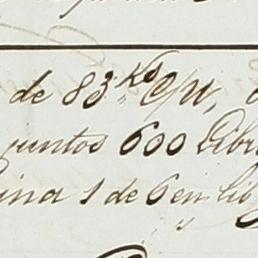 de 83 Ks c/u,
juntos 600 libr
ina 1 de 6 en lib